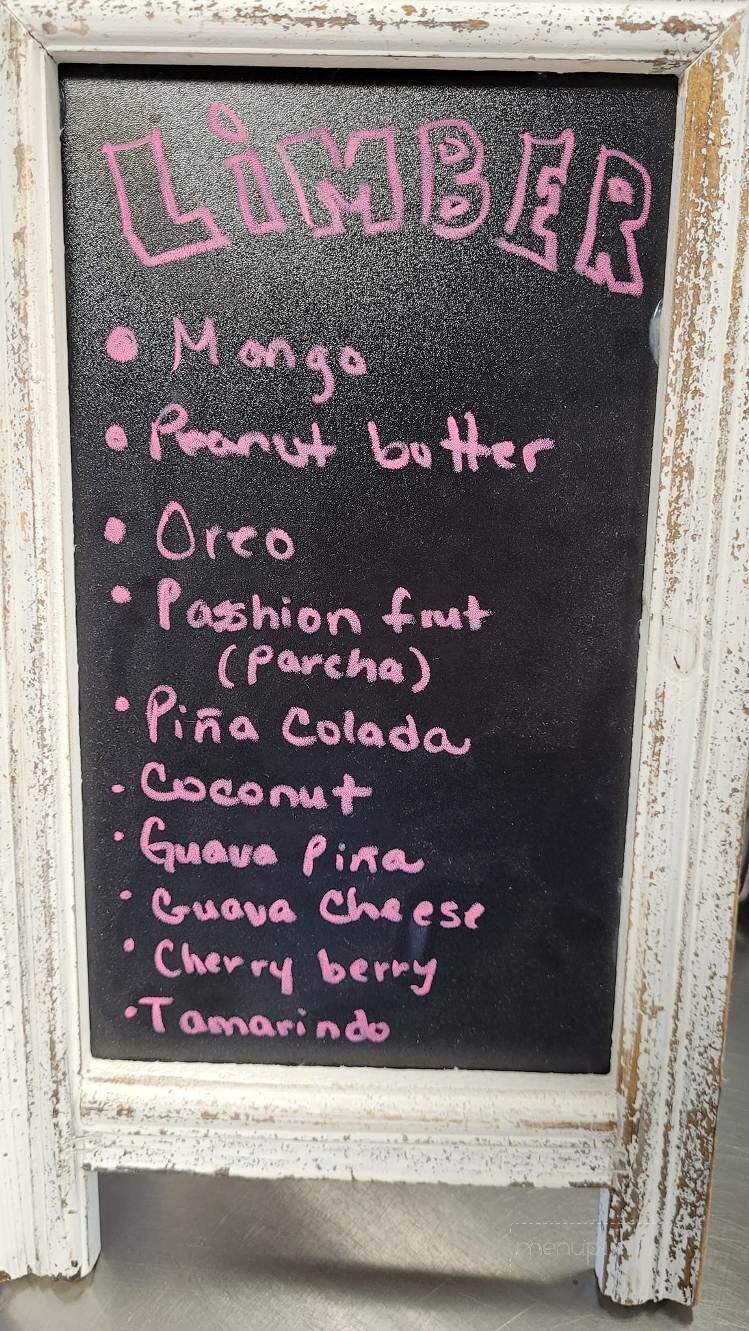 LiMBER
• Mango
• Peanut butter
• Oreo
• Passhion fruit
(parcha)
• Piña Colada
• Coconut
• Guava Piña
• Guava Cheese
• Cherry berry
• Tamarindo